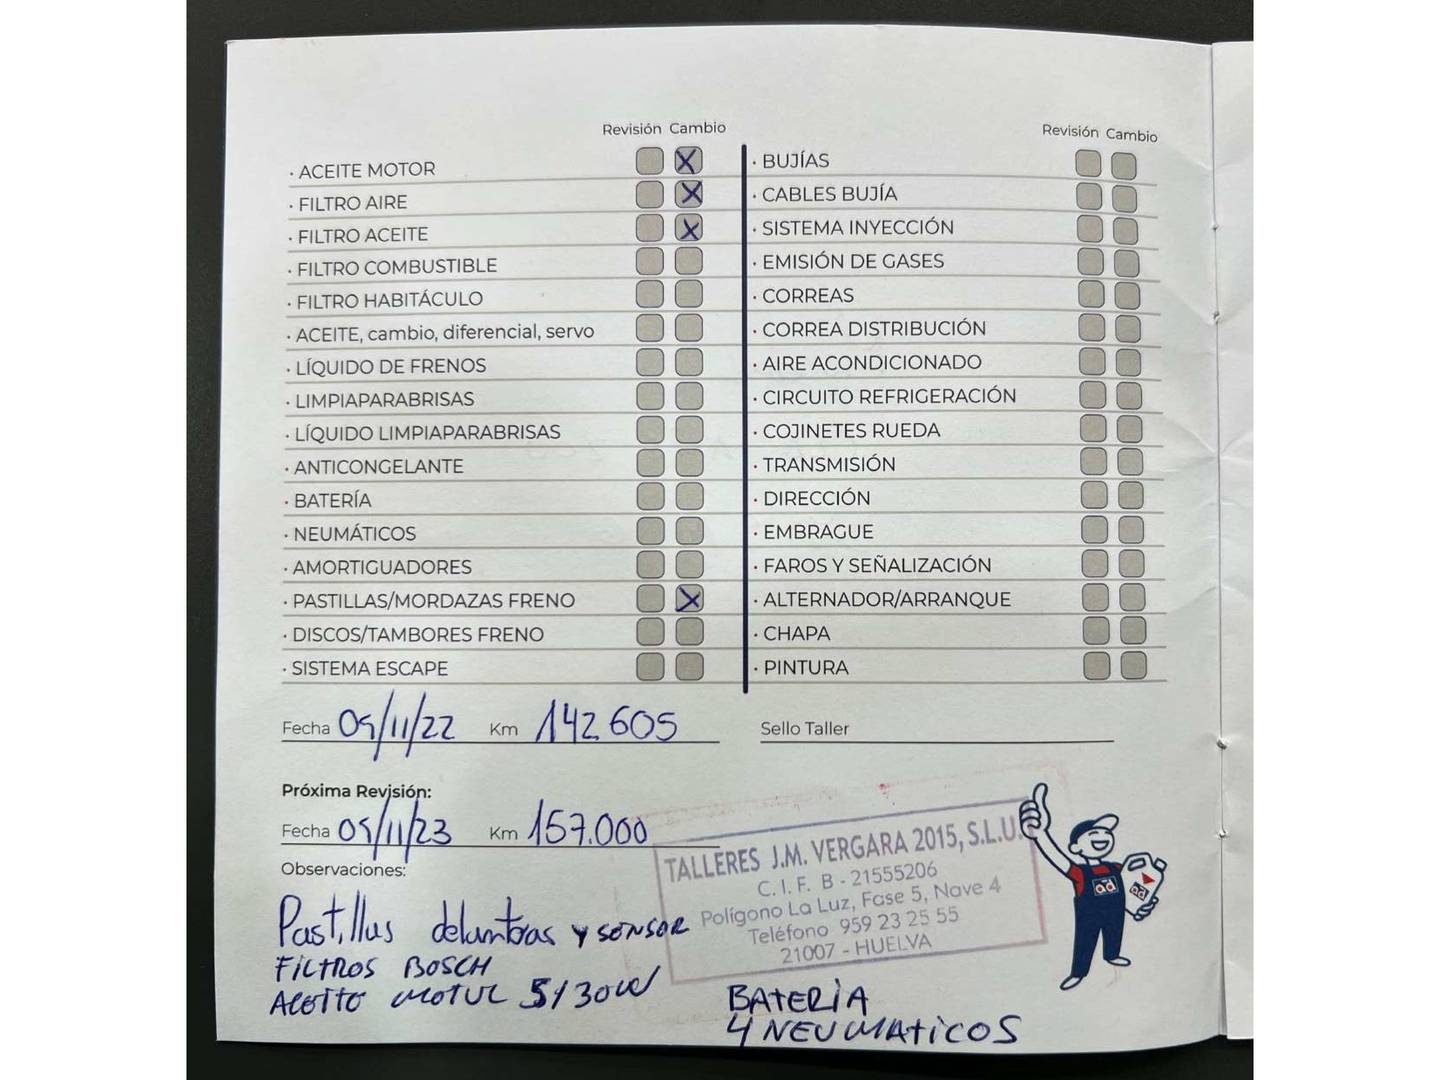 Revisión Cambio
· ACEITE MOTOR
· FILTRO AIRE
· FILTRO ACEITE
· FILTRO COMBUSTIBLE
· FILTRO HABITÁCULO
· ACEITE, cambio, diferencial, servo
· LÍQUIDO DE FRENOS
· LIMPIAPARABRISAS
· LÍQUIDO LIMPIAPARABRISAS
· ANTICONGELANTE
· BATERÍA
· NEUMÁTICOS
· AMORTIGUADORES
· PASTILLAS/MORDAZAS FRENO
· DISCOS/TAMBORES FRENO
· SISTEMA ESCAPE
Revisión Cambio
· BUJÍAS
· CABLES BUJÍA
· SISTEMA INYECCIÓN
· EMISIÓN DE GASES
· CORREAS
· CORREA DISTRIBUCIÓN
· AIRE ACONDICIONADO
· CIRCUITO REFRIGERACIÓN
· COJINETES RUEDA
· TRANSMISIÓN
· DIRECCIÓN
· EMBRAGUE
· FAROS Y SEÑALIZACIÓN
· ALTERNADOR/ARRANQUE
· CHAPA
· PINTURA
Fecha /11/22 Km 142.605
Sello Taller
Próxima Revisión:
Fecha /11/23 Km 157.000
Observaciones:
Pastillas delanteras y SENSOR
FILTROS BOSCH
ACEITE MOTUL 5/30W
TALLERES J.M. VERGARA 2015, S.L.U.
C. I. F. B - 21555206
Polígono La Luz, Fase 5, Nave 4
Teléfono 959 23 25 55
21007 - HUELVA
ad
ad
BATERIA
4 NEUMATICOS